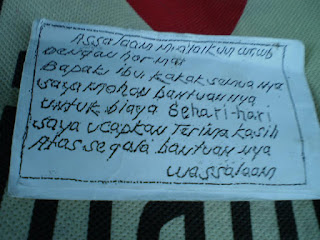 Assalaam mualaikun wrwb
Dengan hormat
Bapak ibu kakak semua nya
saya mohon bantuan nya
untuk biaya Sehari-hari
saya ucapkan Terima kasih
Atas segala bantuan nya
wassalaam